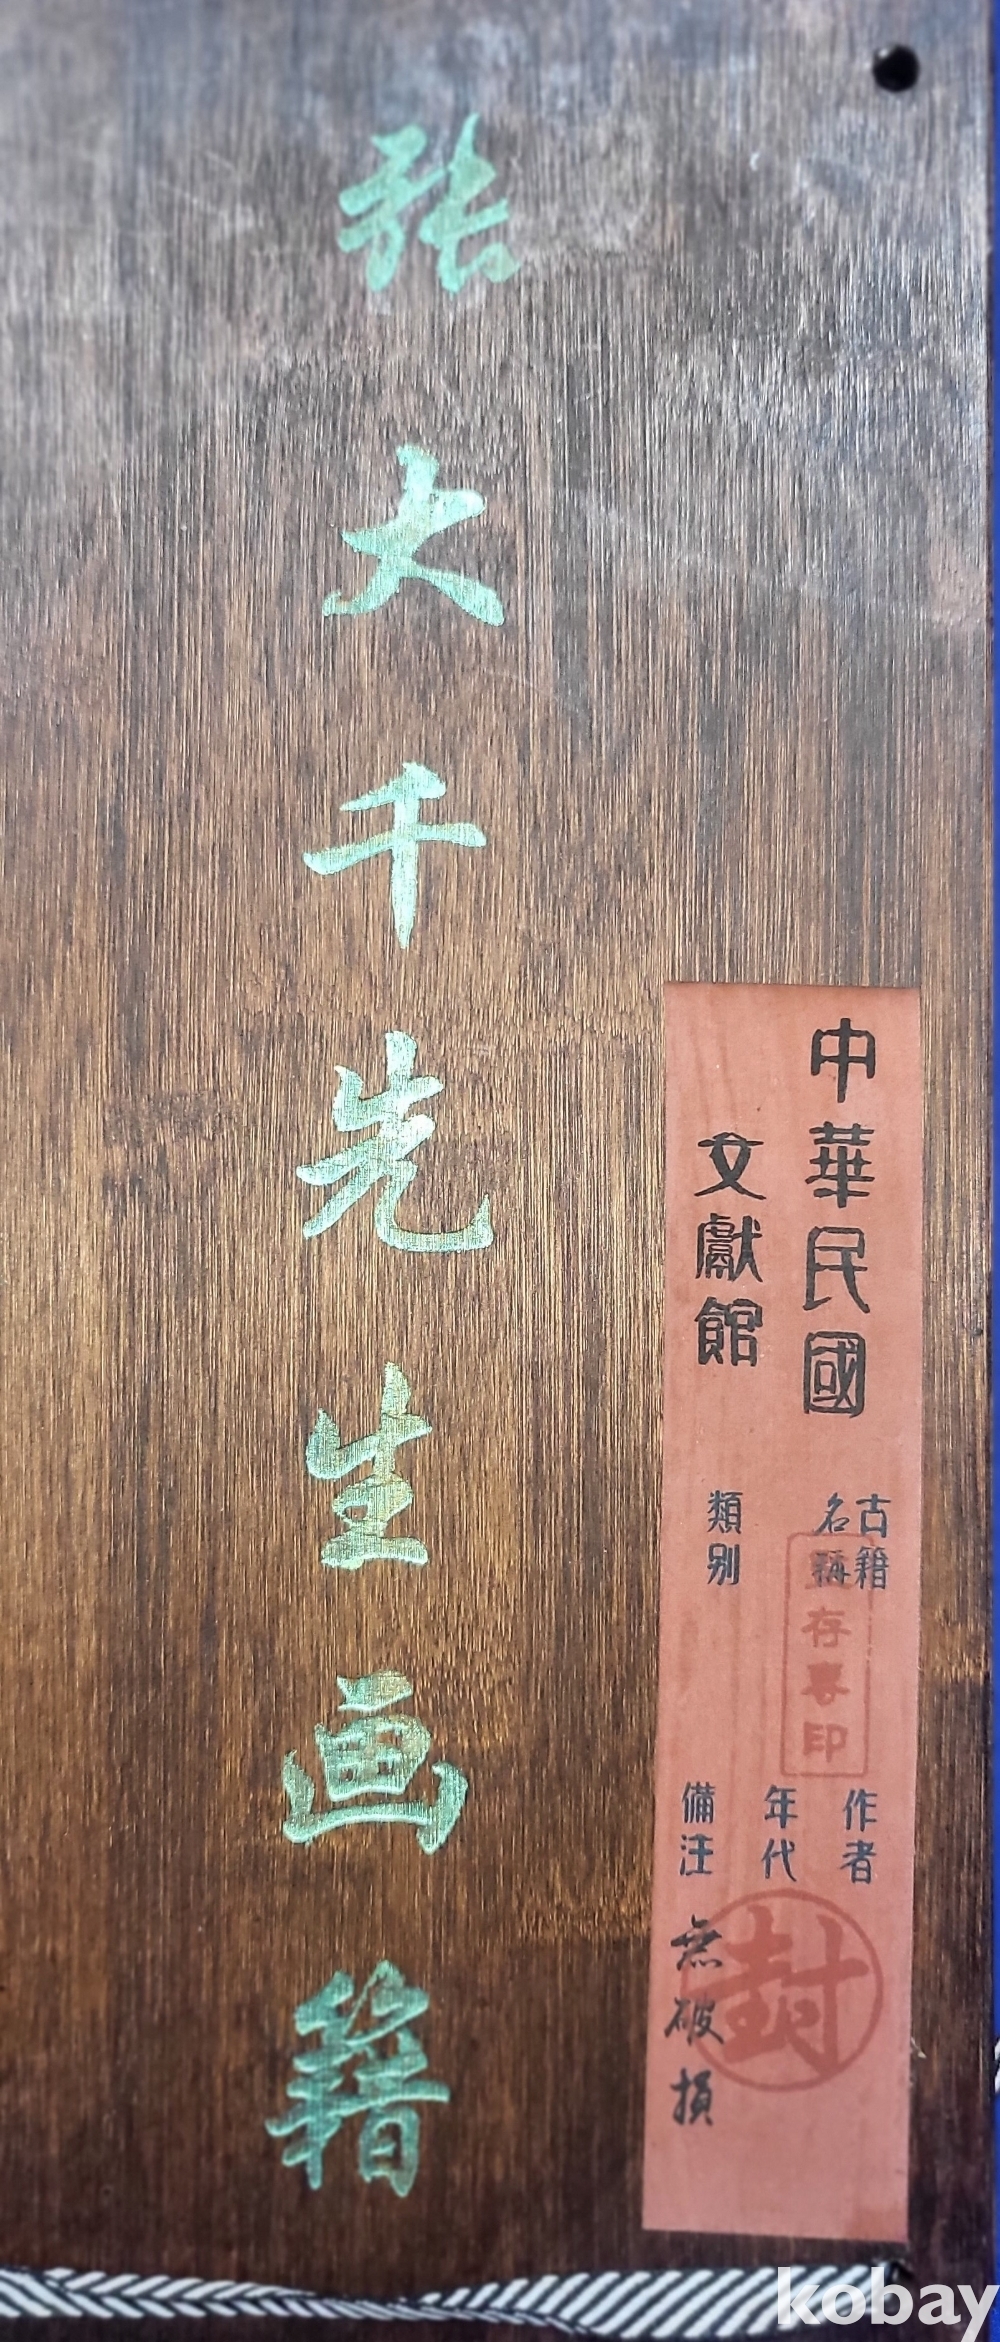 张大千先生画籍
中華民國
文獻館
古籍
名稱
類别
存善印
作者
年代
備注
無破損
封
kobay